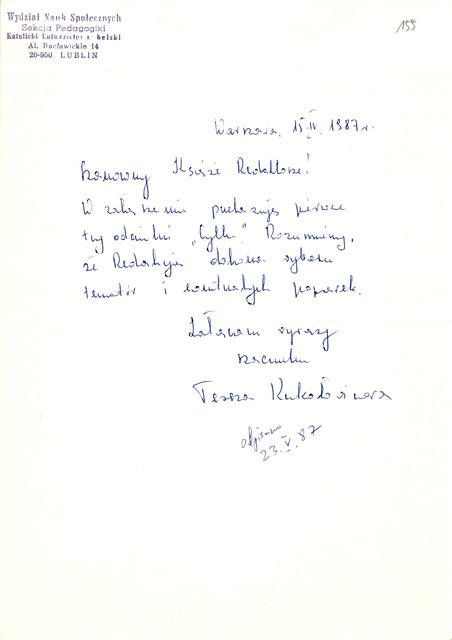 Wydział Nauk Społecznych
Sekcja Pedagogiki
Katolicki Uniwersytet Lubelski
Al. Racławickie 14
20-950 LUBLIN
159
Warszawa, 15.IV.1987r.
Szanowny Księże Redaktorze!
W załączeniu przekazuję pierwsze
trzy odcinki „Cyklu”. Rozumiemy,
że Redakcja dokona wyboru
tematów i ewentualnych poprawek.
Załączam wyrazy
szacunku
Teresa Kukołowicz
odpisano
23.V.87